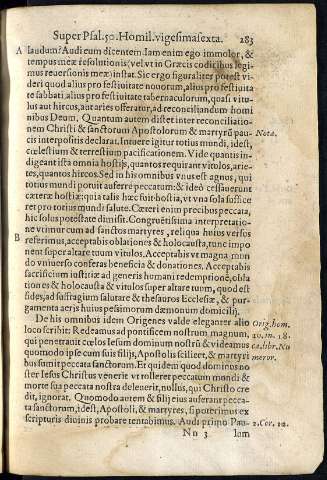 Super Psal. 50. Homil. vigesimasexta. 283
A laudum? Audi eum dicentem. Iam enim ego immolor, &
tempus meæ resolutionis (vel vt in Græcis codicibus legi-
mus reuersionis meæ) instat. Sic ergo figuraliter potest vi-
deri quod alius pro festiuitate nouorum, alius pro festiuita
te sabbati, alius pro festiuitate tabernaculorum, quasi vitu-
lus aut hircus, aut aries offeratur, ad reconciliandum homi
nibus Deum. Quantum autem distet inter reconciliatio-
nem Christi & sanctorum Apostolorum & martyrū pau- Nota.
cis interpositis declarat. Intuere igitur totius mundi, idest,
cœlestium & terrestrium pacificationem. Vide quantis in-
digeant ista omnia hostijs, quantos requirant vitulos, arie-
tes, quantos hircos. Sed in his omnibus vnus est agnus, qui
totius mundi potuit auferre peccatum: & ideò cessauerunt
cæteræ hostiæ: quia talis hæc fuit hostia, vt vna sola suffice
ret pro totius mundi salute. Cæteri enim precibus peccata,
hic solus potestate dimisit. Congruētissima interpretatio-
ne vtimur cum ad sanctos martyres, reliqua huius versos
B referimus, acceptabis oblationes & holocausta, tunc impo
nent super altare tuum vitulos. Acceptabis vt magna mun
do vniuerso conferas beneficia & donationes. Acceptabis
sacrificium iustitiæ ad generis humani redemptionē, obla
tiones & holocausta & vitulos super altare tuum, quod est
fides, ad suffragium salutare & thesauros Ecclesiæ, & pur-
gamenta aeris huius pessimorum dæmonum domicilij.
De his omnibus idem Origenes valde eleganter alio Orig. hom.
loco scribit: Redeamus ad pontificem nostrum magnum, 10. in. 18.
qui penetrauit cœlos Iesum dominum nostrū & videamus ca. libr. Nu
quomodo ipse cum suis filijs, Apostolis scilicet, & martyri meror.
bus sumit peccata sanctorum. Et quidem quod dominus no
ster Iesus Christus venerit vt tolleret peccatum mundi &
morte sua peccata nostra deleuerit, nullus, qui Christo cre
dit, ignorat. Quomodo autem & filij eius auferant pecca-
ta sanctorum, idest, Apostoli, & martyres, si poterimus ex
scripturis diuinis probare tentabimus. Audi primò Pau- 2. Cor. 12.
Nn 3 lum